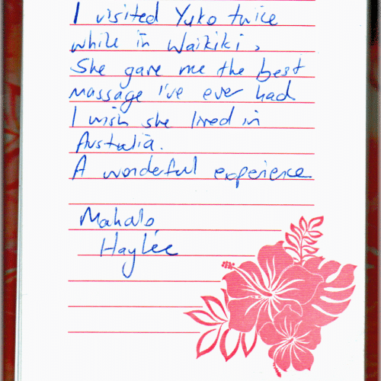 I visited Yuko twice
while in Waikiki,
She gave me the best
massage I've ever had
I wish she lived in
Australia.
A wonderful experience
Mahalo
Haylee